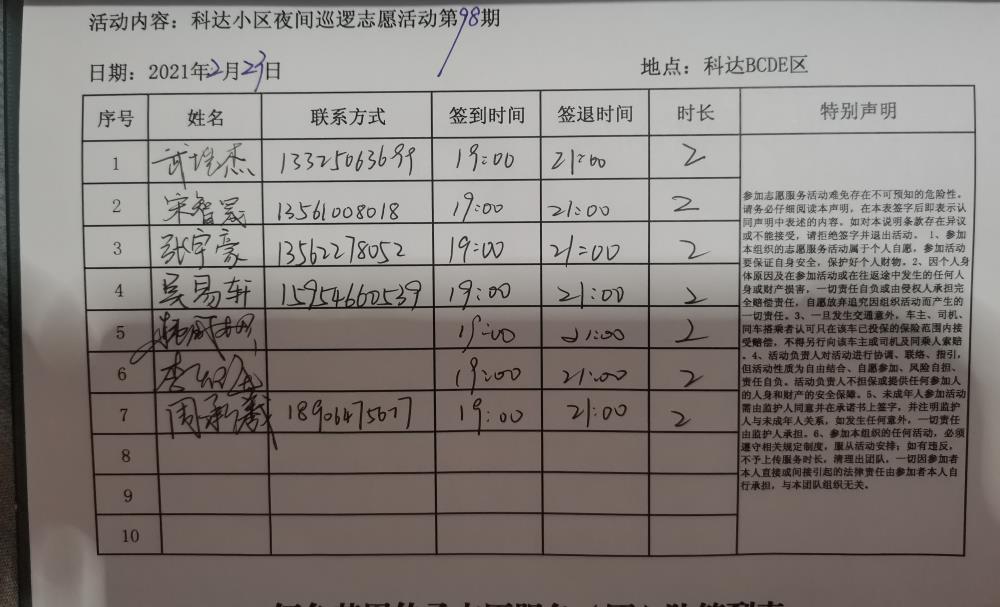 活动内容：科达小区夜间巡逻志愿活动第98期
日期：2021年2月23日 地点：科达BCDE区
序号 姓名 联系方式 签到时间 签退时间 时长 特别声明
1 武 杰 13325063699 19:00 21:00 2
2 宋智晟 13561008018 19:00 21:00 2
3 张宇豪 13562278052 19:00 21:00 2
4 吴易轩 15954660539 19:00 21:00 2
5 19:00 21:00 2
6 李 19:00 21:00 2
7 周承羲 18906475677 19:00 21:00 2
8
9
10
参加志愿服务活动难免存在不可预知的危险性。
请务必仔细阅读本声明，在本表签字后即表示认
同声明中表述的内容。如对本说明条款存在异议
或不能接受，请拒绝签字并退出活动。 1、参加
本组织的志愿服务活动属于个人自愿，参加活动
要保证自身安全，保护好个人财物。2、因个人身
体原因及在参加活动或在往返途中发生的任何人
身或财产损害，一切责任自负或由侵权人承担完
全赔偿责任，自愿放弃追究因组织活动而产生的
一切责任。3、一旦发生交通意外，车主、司机、
同车搭乘者认可只在该车已投保的保险范围内接
受赔偿，不得另行向该车主或司机及同乘人索赔
。4、活动负责人对活动进行协调、联络、指引，
但活动性质为自由结合、自愿参加、风险自担、
责任自负。活动负责人不担保或提供任何参加人
的人身和财产的安全保障。5、未成年人参加活动
需由监护人同意并在承诺书上签字，并注明监护
人与未成年人关系，如发生任何意外，一切责任
由监护人承担。6、参加本组织的任何活动，必须
遵守相关规定制度，服从活动安排；如有违反，
不予上传服务时长，清理出团队，一切因参加者
本人直接或间接引起的法律责任由参加者本人自
行承担，与本团队组织无关。